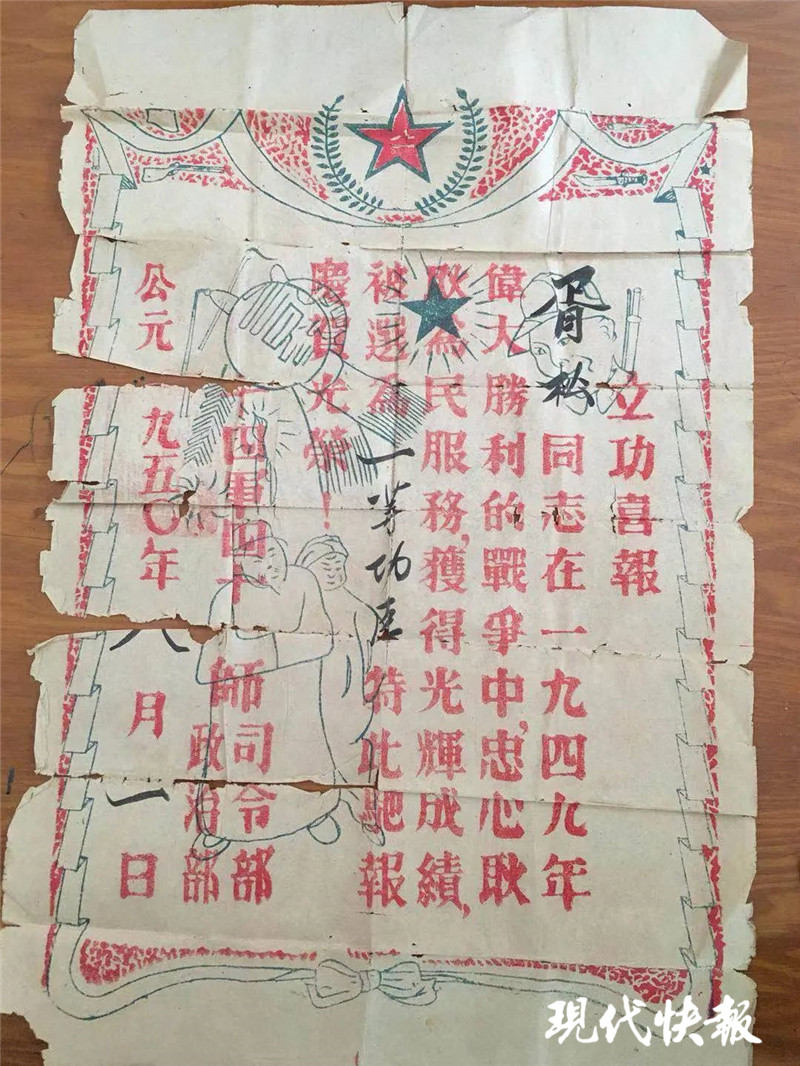 立功喜報
胥松同志在一九四九年
偉大勝利的戰爭中,忠心耿
耿為民服務,獲得光輝成績,
被選為一等功臣特此馳報
慶賀光榮!
十四軍四十師司令部
政治部
公元一九五〇年八月一日
八一
現代快報